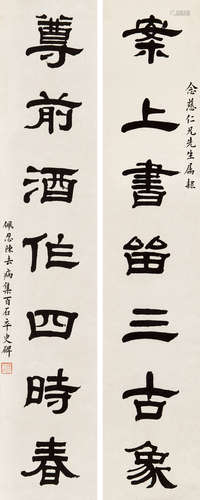 念慈仁兄先生屬
案上書留三古象
尊前酒作四時春
佩忍陳去病集百石卒史碑